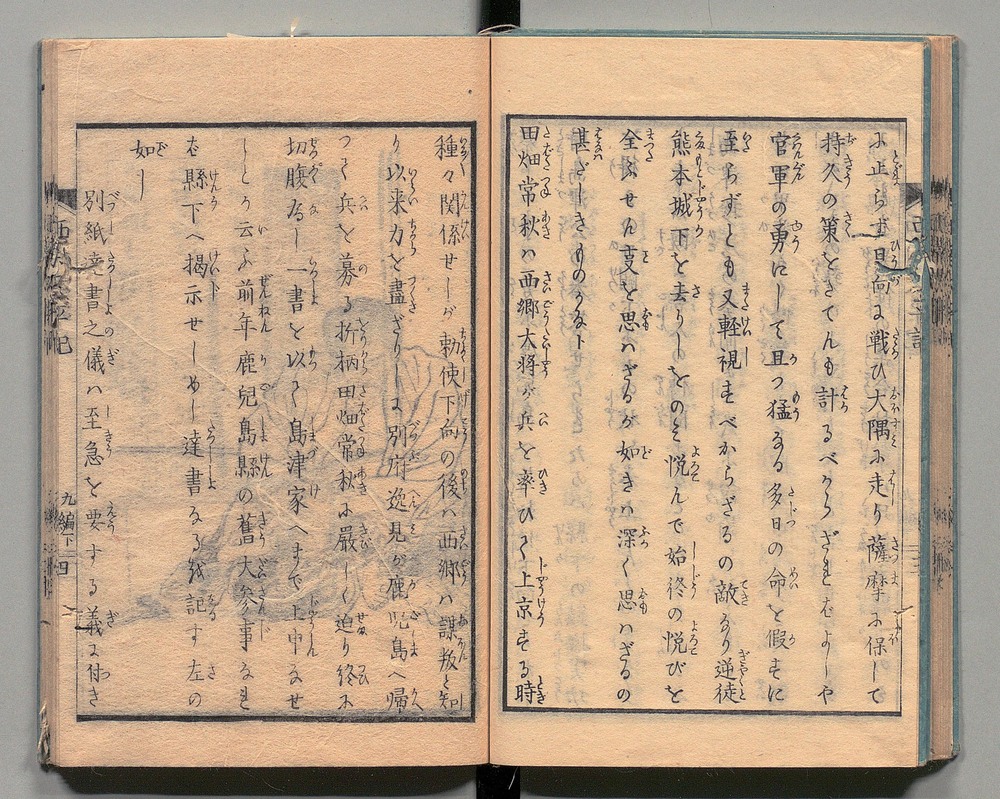 に止らず日向に戦ひ大隅に走り薩摩に保して
持久の策をさてんも計るべからざれバよしや
官軍の勇にして且つ猛なる多日の命を假すに
至らずとも又軽視すべからざるの敵なり逆徒
熊本城下を去りしをのミ悦んで始終の悦びを
全ふせん支を思ハざるが如きハ深く思ハざるの
甚だしきものかなト
田畑常秋ハ西郷大将が兵を率ひて上京する時
種々関係せしが勅使下向の後ハ西郷ハ謀叛と知
り以来力を盡ざりしに別府逸見が鹿児島へ帰
つて兵を募る折柄田畑常秋に厳しく迫り終に
切腹為し一書を以て島津家へまで上申なせ
しとり云ふ前年鹿兒島縣の舊大参事なれ
バ縣下へ揭示せしめし達書なる故記す左の
如し
別紙達書之儀ハ至急を要する義に付き
九編下 四